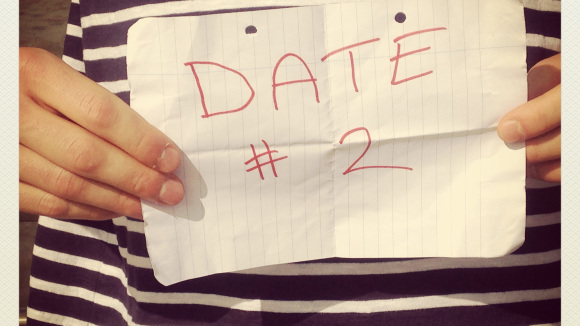 DATE
# 2